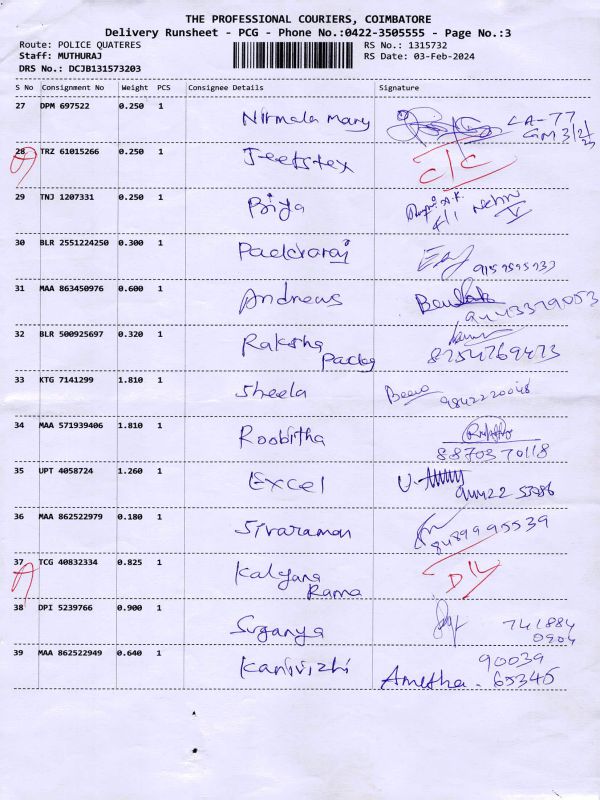 THE PROFESSIONAL COURIERS, COIMBATORE
Delivery Runsheet - PCG - Phone No.:0422-3505555 - Page No.:3
Route: POLICE QUATERES RS No.: 1315732
Staff: MUTHURAJ RS Date: 03-Feb-2024
DRS No.: DCJB131573203
S No Consignment No Weight PCS Consignee Details Signature
27 DPM 697522 0.250 1 Nirmala Mary LA-77
GM 3/2/
28 TRZ 61015266 0.250 1 Jeetstex C/C
29 TNJ 1207331 0.250 1 Priya
30 BLR 2551224250 0.300 1 Padchraraj
31 MAA 863450976 0.600 1 Andrews
9443379053
32 BLR 500925697 0.320 1 Raksha
Padeg 8754769473
33 KTG 7141299 1.810 1 Sheela 9842220048
34 MAA 571939406 1.810 1 Roobitha
8870370118
35 UPT 4058724 1.260 1 Excel
36 MAA 862522979 0.180 1 Sivaraman 8489995539
37 TCG 40832334 0.825 1 Kalyana
Rama D/L
38 DPI 5239766 0.900 1 Suganya 741884
0904
39 MAA 862522949 0.640 1 Kanivizhi 90039
Ametha. 65346